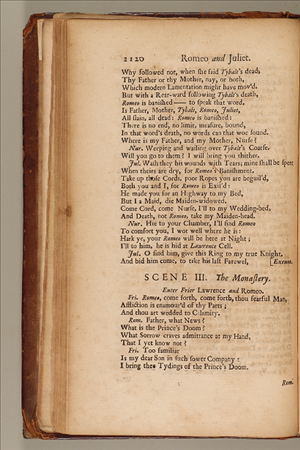 2120 Romeo and Juliet.
Why followed not, when she said Tybalt's dead,
Thy Father or thy Mother, nay, or both,
Which modern Lamentation might have mov'd.
But with a Rear-ward following Tybalt's death,
Romeo is banished—— to speak that word,
Is Father, Mother, Tybalt, Romeo, Juliet,
All slain, all dead: Romeo is banished!
There is no end, no limit, measure, bound,
In that word's death, no words can that woe sound.
Where is my Father, and my Mother, Nurse?
Nur. Weeping and wailing over Tybalt's Coarse.
Will you go to them? I will bring you thither.
Jul. Wash they his wounds with Tears; mine shall be spent
When theirs are dry, for Romeo's Banishment.
Take up those Cords, poor Ropes you are beguil'd,
Both you and I, for Romeo is Exil'd:
He made you for an Highway to my Bed,
But I a Maid, die Maiden-widowed,
Come Cord, come Nurse, I'll to my Wedding-bed,
And Death, not Romeo, take my Maiden-head.
Nur. Hie to your Chamber, I'll find Romeo
To comfort you, I wot well where he is:
Hark ye, your Romeo will be here at Night;
I'll to him, he is hid at Lawrence Cell.
Jul. O find him, give this Ring to my true Knight,
And bid him come, to take his last Farewel, [Exeunt.
SCENE III. The Monastery.
Enter Frier Lawrence and Romeo.
Fri. Romeo, come forth, come forth, thou fearful Man,
Affliction is enamour'd of thy Parts;
And thou art wedded to Calamity.
Rom. Father, what News?
What is the Prince's Doom?
What Sorrow craves admittance at my Hand,
That I yet know not?
Fri. Too familiar
Is my dear Son in such sower Company:
I bring thee Tydings of the Prince's Doom.
Rom.